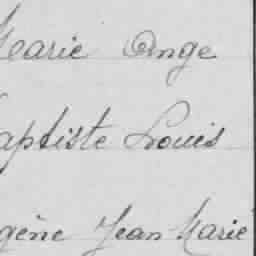 Marie Ange
Baptiste Louis
Eugène Jean Marie